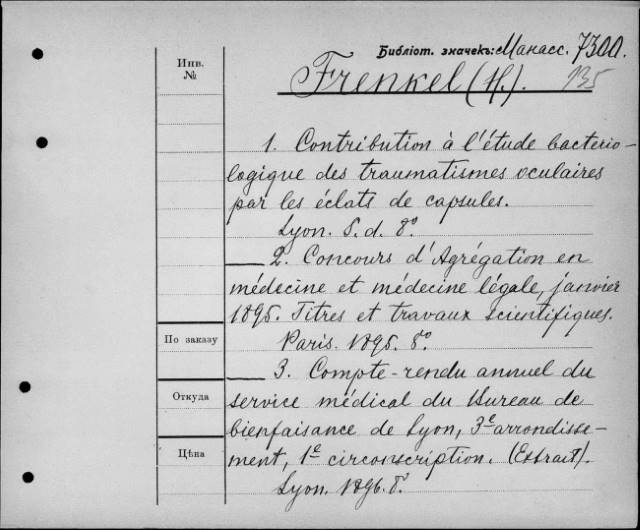 Библіот. значекъ: Манасс. 7300.
135
Инв.
№
Frenkel (H.).
1. Contribution à l'étude bacterio-
logique des traumatismes oculaires
par les éclats de capsules.
Lyon. S. d. 8°
2. Concours d'Agrégation en
médecine et médecine légale, janvier
1895. Titres et travaux scientifiques.
По заказу
Paris. 1895. 8°
3. Compte-rendu annuel du
Откуда
service médical du Bureau de
bienfaisance de Lyon, 3e arrondisse-
Цѣна
ment, 1e circonscription. (Extrait).
Lyon. 1896. 8°